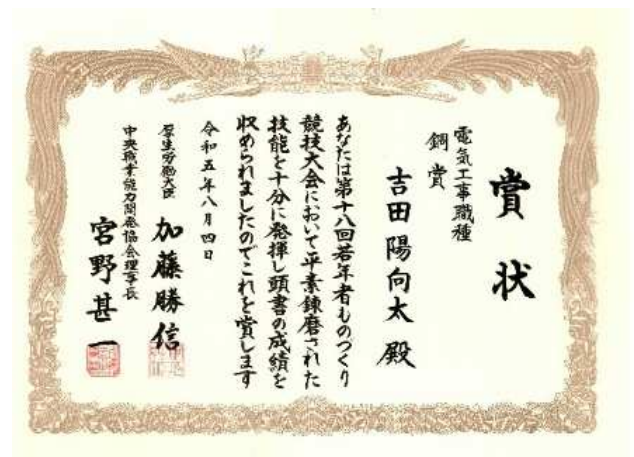 賞状
電気工事職種
銅賞
吉田陽向太殿
あなたは第十八回若年者ものづくり
競技大会において平素錬磨された
技能を十分に発揮し頭書の成績を
収められましたのでこれを賞します
令和五年八月四日
厚生労働大臣 加藤勝信
中央職業能力開発協会理事長 宮野甚一